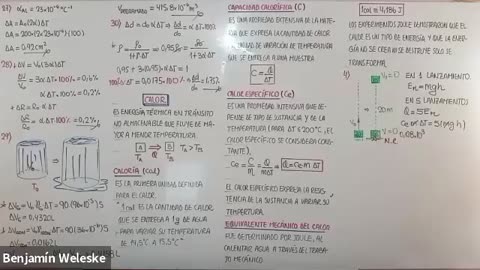 27) α_AL = 23×10⁻⁶ °C⁻¹
ΔA =
ΔA = 200(2×23×10⁻⁶)(100)
ΔA = 0.92 cm²
28) ΔV = V₀ 3α ΔT
ΔV/V₀ = 3α ΔT · 100% = 0,6%
ΔR = R₀ α ΔT
ΔR/R₀ = α ΔT · 100% = 0,2%
29)
T₀
ΔV_B =
0.4320L
0.0162L
30)
ρ =
0,95ρ₀ =
0,95(1+3α ΔT) = 1
α ΔT = 0,0175 · 100%
CALOR
ES ENERGÍA TÉRMICA EN TRÁNSITO
NO ALMACENABLE QUE FLUYE DE MAYOR
A MENOR TEMPERATURA.
A Q B T_A > T_B
T_A T_B
CALORÍA (cal)
ES LA PRIMERA UNIDAD DEFINIDA
PARA EL CALOR.
"1 cal ES LA CANTIDAD DE CALOR
QUE SE ENTREGA A 1g DE AGUA
PARA VARIAR SU TEMPERATURA
DE 14,5°C A 15,5°C"
CAPACIDAD CALORÍFICA (C)
ES UNA PROPIEDAD EXTENSIVA DE LA MATERIA
QUE EXPRESA LA CANTIDAD DE CALOR
POR UNIDAD DE VARIACIÓN DE TEMPERATURA
QUE SE ENTREGA A UNA MUESTRA
C = Q/ΔT
CALOR ESPECÍFICO (Ce)
ES UNA PROPIEDAD INTENSIVA QUE DEPENDE
DE TIPO DE SUSTANCIA Y DE LA
TEMPERATURA (PARA ΔT ≤ 200°C, EL
CALOR ESPECÍFICO SE CONSIDERA
CONSTANTE).
Ce = C/m = Q/mΔT Q = Ce m ΔT
EL CALOR ESPECÍFICO EXPRESA LA RESISTENCIA
DE LA SUSTANCIA A VARIAR SU
TEMPERATURA.
EQUIVALENTE MECÁNICO DEL CALOR
FUE DETERMINADO POR JOULE, AL
CALENTAR AGUA A TRAVÉS DEL TRABAJO
MECÁNICO
1cal = 4,186 J
LOS EXPERIMENTOS JOULE DEMOSTRARON QUE EL
CALOR ES UN TIPO DE ENERGÍA Y QUE LA ENERGÍA
NO SE CREA NI SE DESTRUYE SOLO SE
TRANSFORMA.
20m
EN 1 LANZAMIENTO.
E_M = mgh
EN 5 LANZAMIENTOS
Q = 5E_M
Ce m ΔT = 5(mgh)
N.R.
Benjamín Weleske